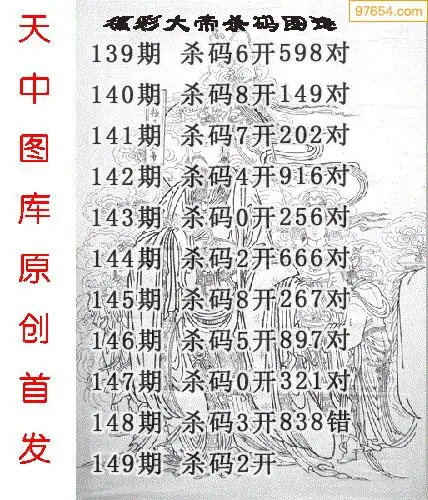 97654.com
福彩大帝杀码图迷
天中图库原创首发
139期 杀码6开598对
140期 杀码8开149对
141期 杀码7开202对
142期 杀码4开916对
143期 杀码0开256对
144期 杀码2开666对
145期 杀码8开267对
146期 杀码5开897对
147期 杀码0开321对
148期 杀码3开838错
149期 杀码2开